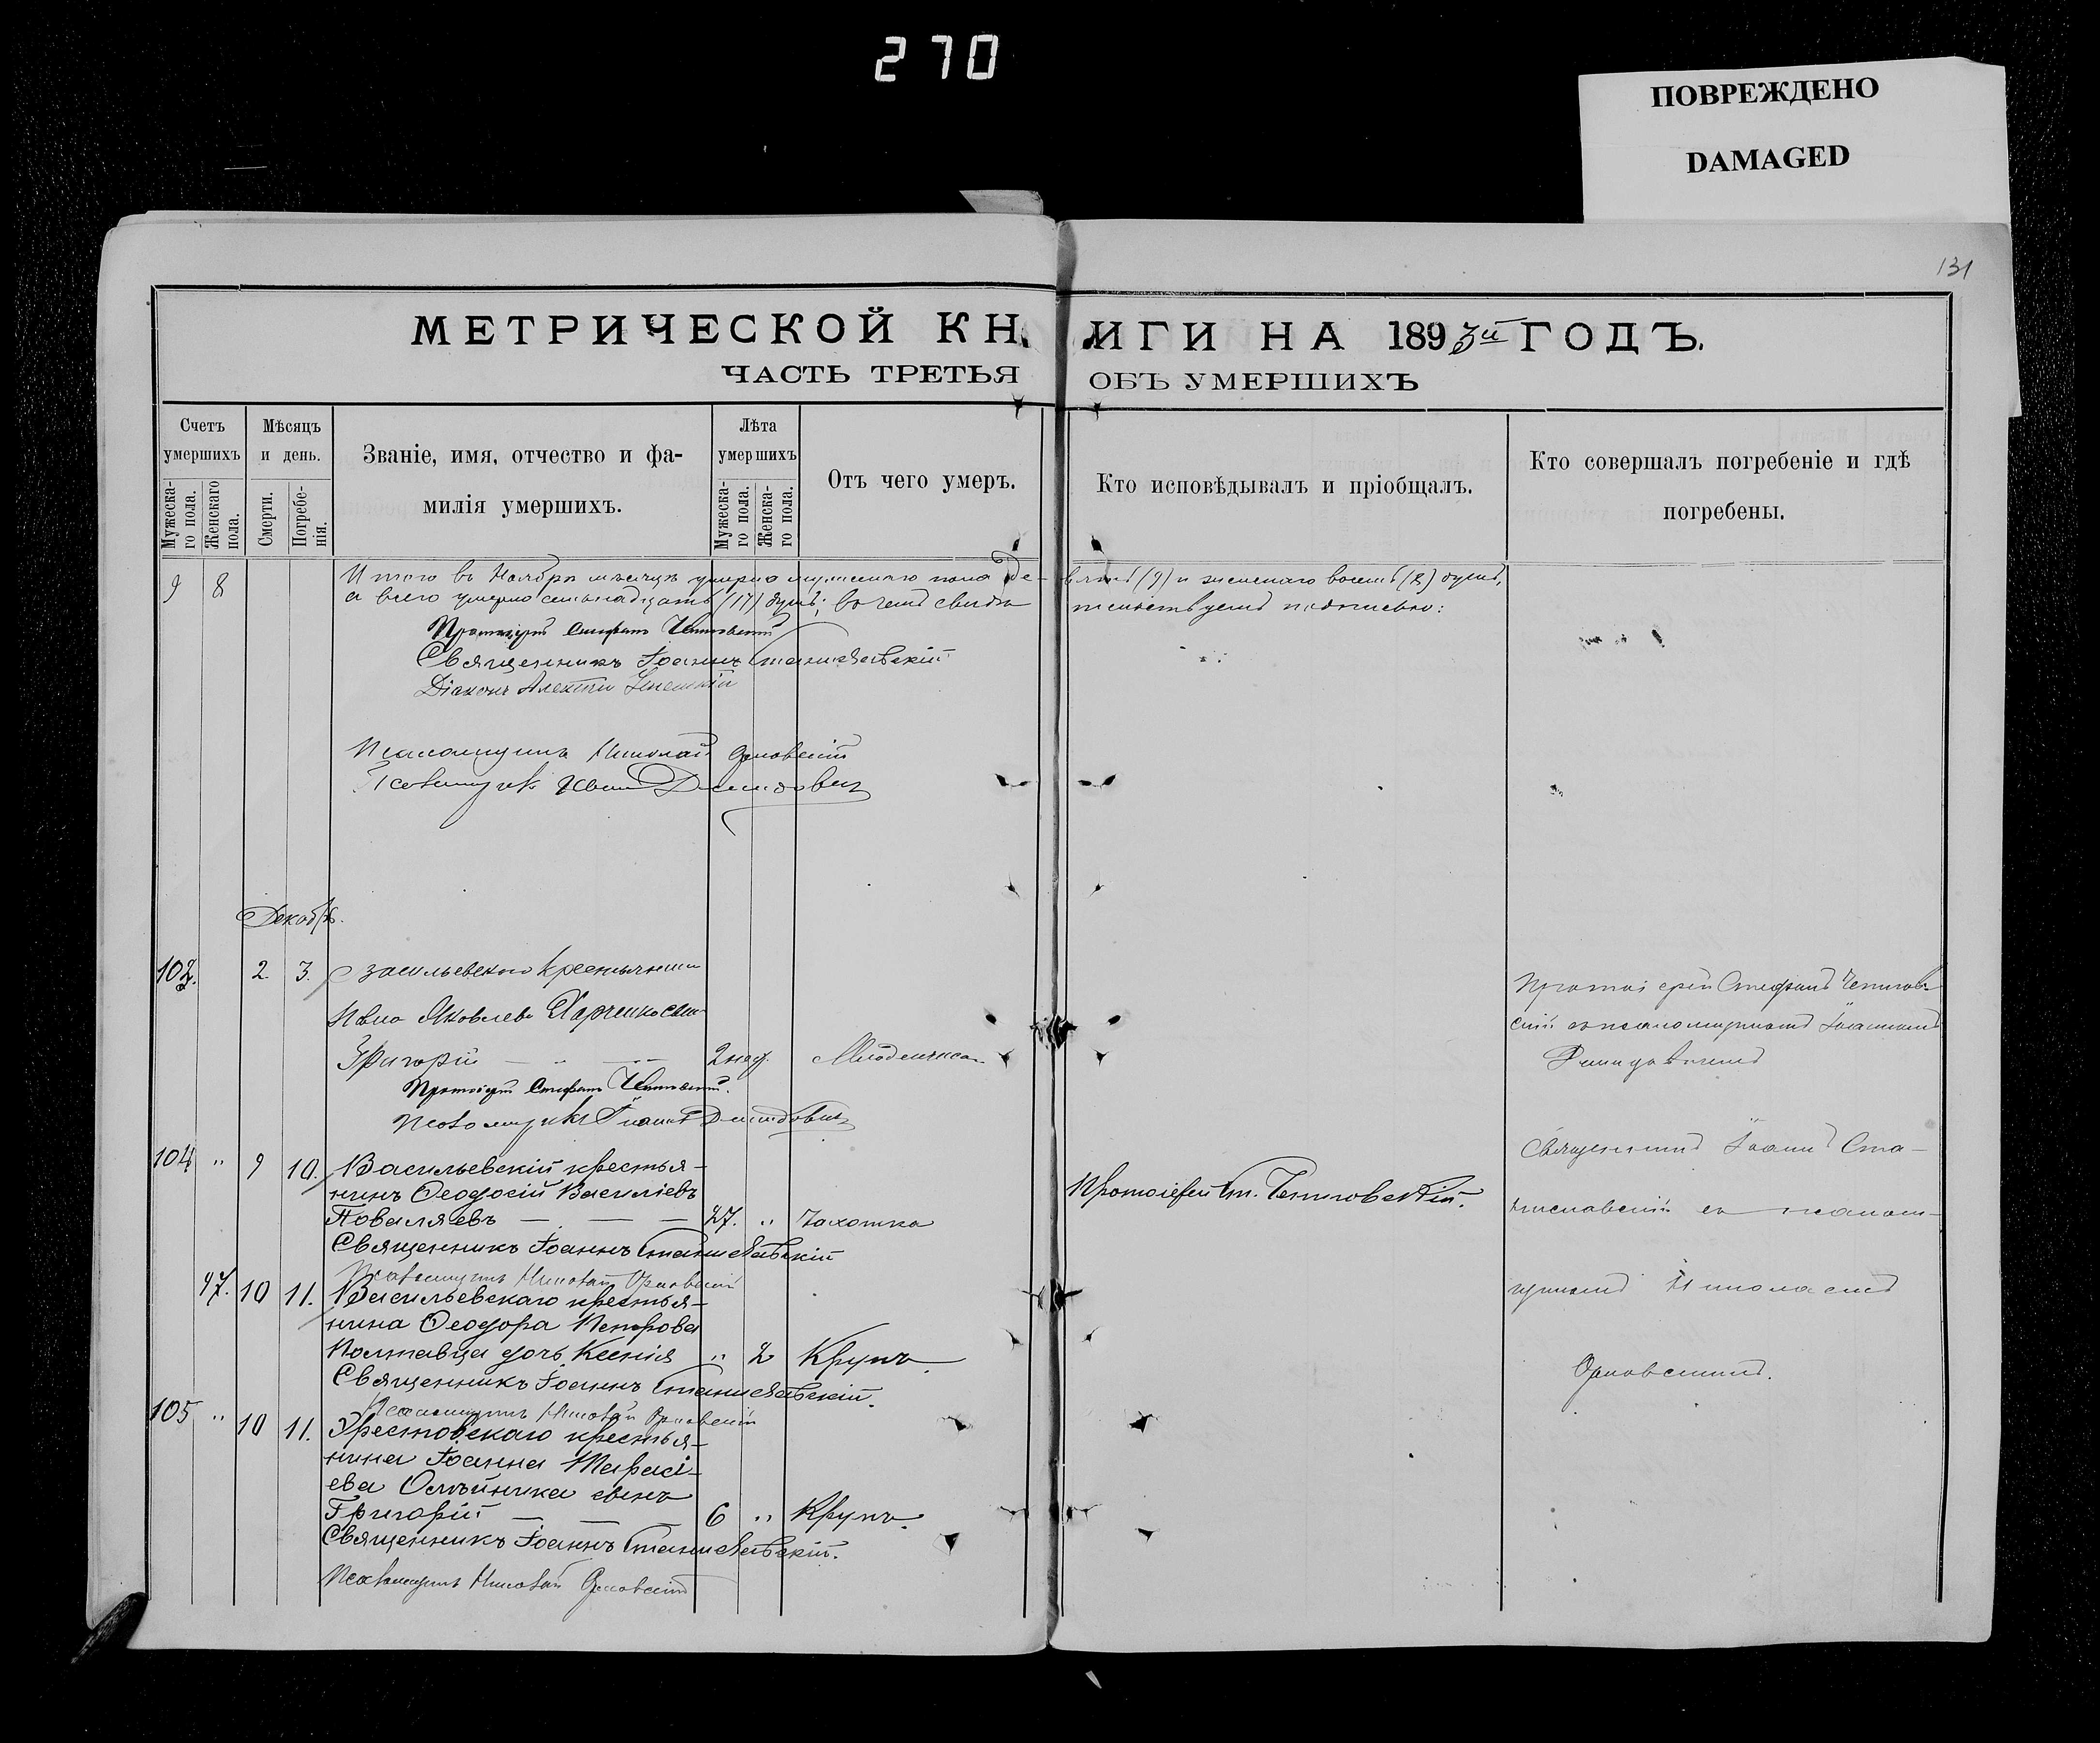 270
ПОВРЕЖДЕНО
DAMAGED
131
МЕТРИЧЕСКОЙ КНИГИ НА 1893й ГОДЪ.
ЧАСТЬ ТРЕТЬЯ ОБЪ УМЕРШИХЪ
Счетъ умершихъ
Мужеска-го пола.
Женскаго пола.
Мѣсяцъ и день.
Смерти.
Погребе-нія.
Званіе, имя, отчество и фа-
милія умершихъ.
Лѣта умершихъ
Мужеска-го пола.
Женска-го пола.
Отъ чего умеръ.
Кто исповѣдывалъ и пріобщалъ.
Кто совершалъ погребеніе и гдѣ
погребены.
9 8 Итого въ Ноябрѣ мѣсяцѣ умерло мужескаго пола девять (9) и женскаго восемь (8) душъ,
а всего умерло семьнадцать (17) душъ; въ чемъ свидѣтельствуемъ подписью:
Протоіерей Стефанъ
Священникъ Іоаннъ Станиславскій
Діаконъ Алексѣй
Псаломщикъ Николай Орловскій
Псаломщикъ Иванъ Демидовичъ
Декабрь.
103. 2 3. крестьянина
Яковлева Харченко сынъ
Григорій — " — 2 нед.
Протоіерей Стефанъ
Псаломщикъ Іоаннъ Демидовичъ
Протоіерей Стефанъ
съ псаломщикомъ Іоанномъ
Демидовичемъ
104 " 9 10. Васильевскій крестья-
нинъ Ѳеодосій Василіевъ
Поваляевъ — — — 27. " Чахотка
Священникъ Іоаннъ Станиславскій
Псаломщикъ Николай Орловскій
Протоіерей Ст.
Священникъ Іоаннъ Ста-
ниславскій съ псалом-
щикомъ Николаемъ
Орловскимъ.
47. 10 11. Васильевскаго крестья-
нина Ѳеодора Петрова
Полтавца дочь Ксенія " 2 Крупъ.
Священникъ Іоаннъ Станиславскій.
Псаломщикъ Николай Орловскій
105 " 10 11. крестья-
нина Іоанна Тарасі-
ева Олѣйника сынъ
Григорій — — — 6 " Крупъ.
Священникъ Іоаннъ Станиславскій.
Псаломщикъ Николай Орловскій